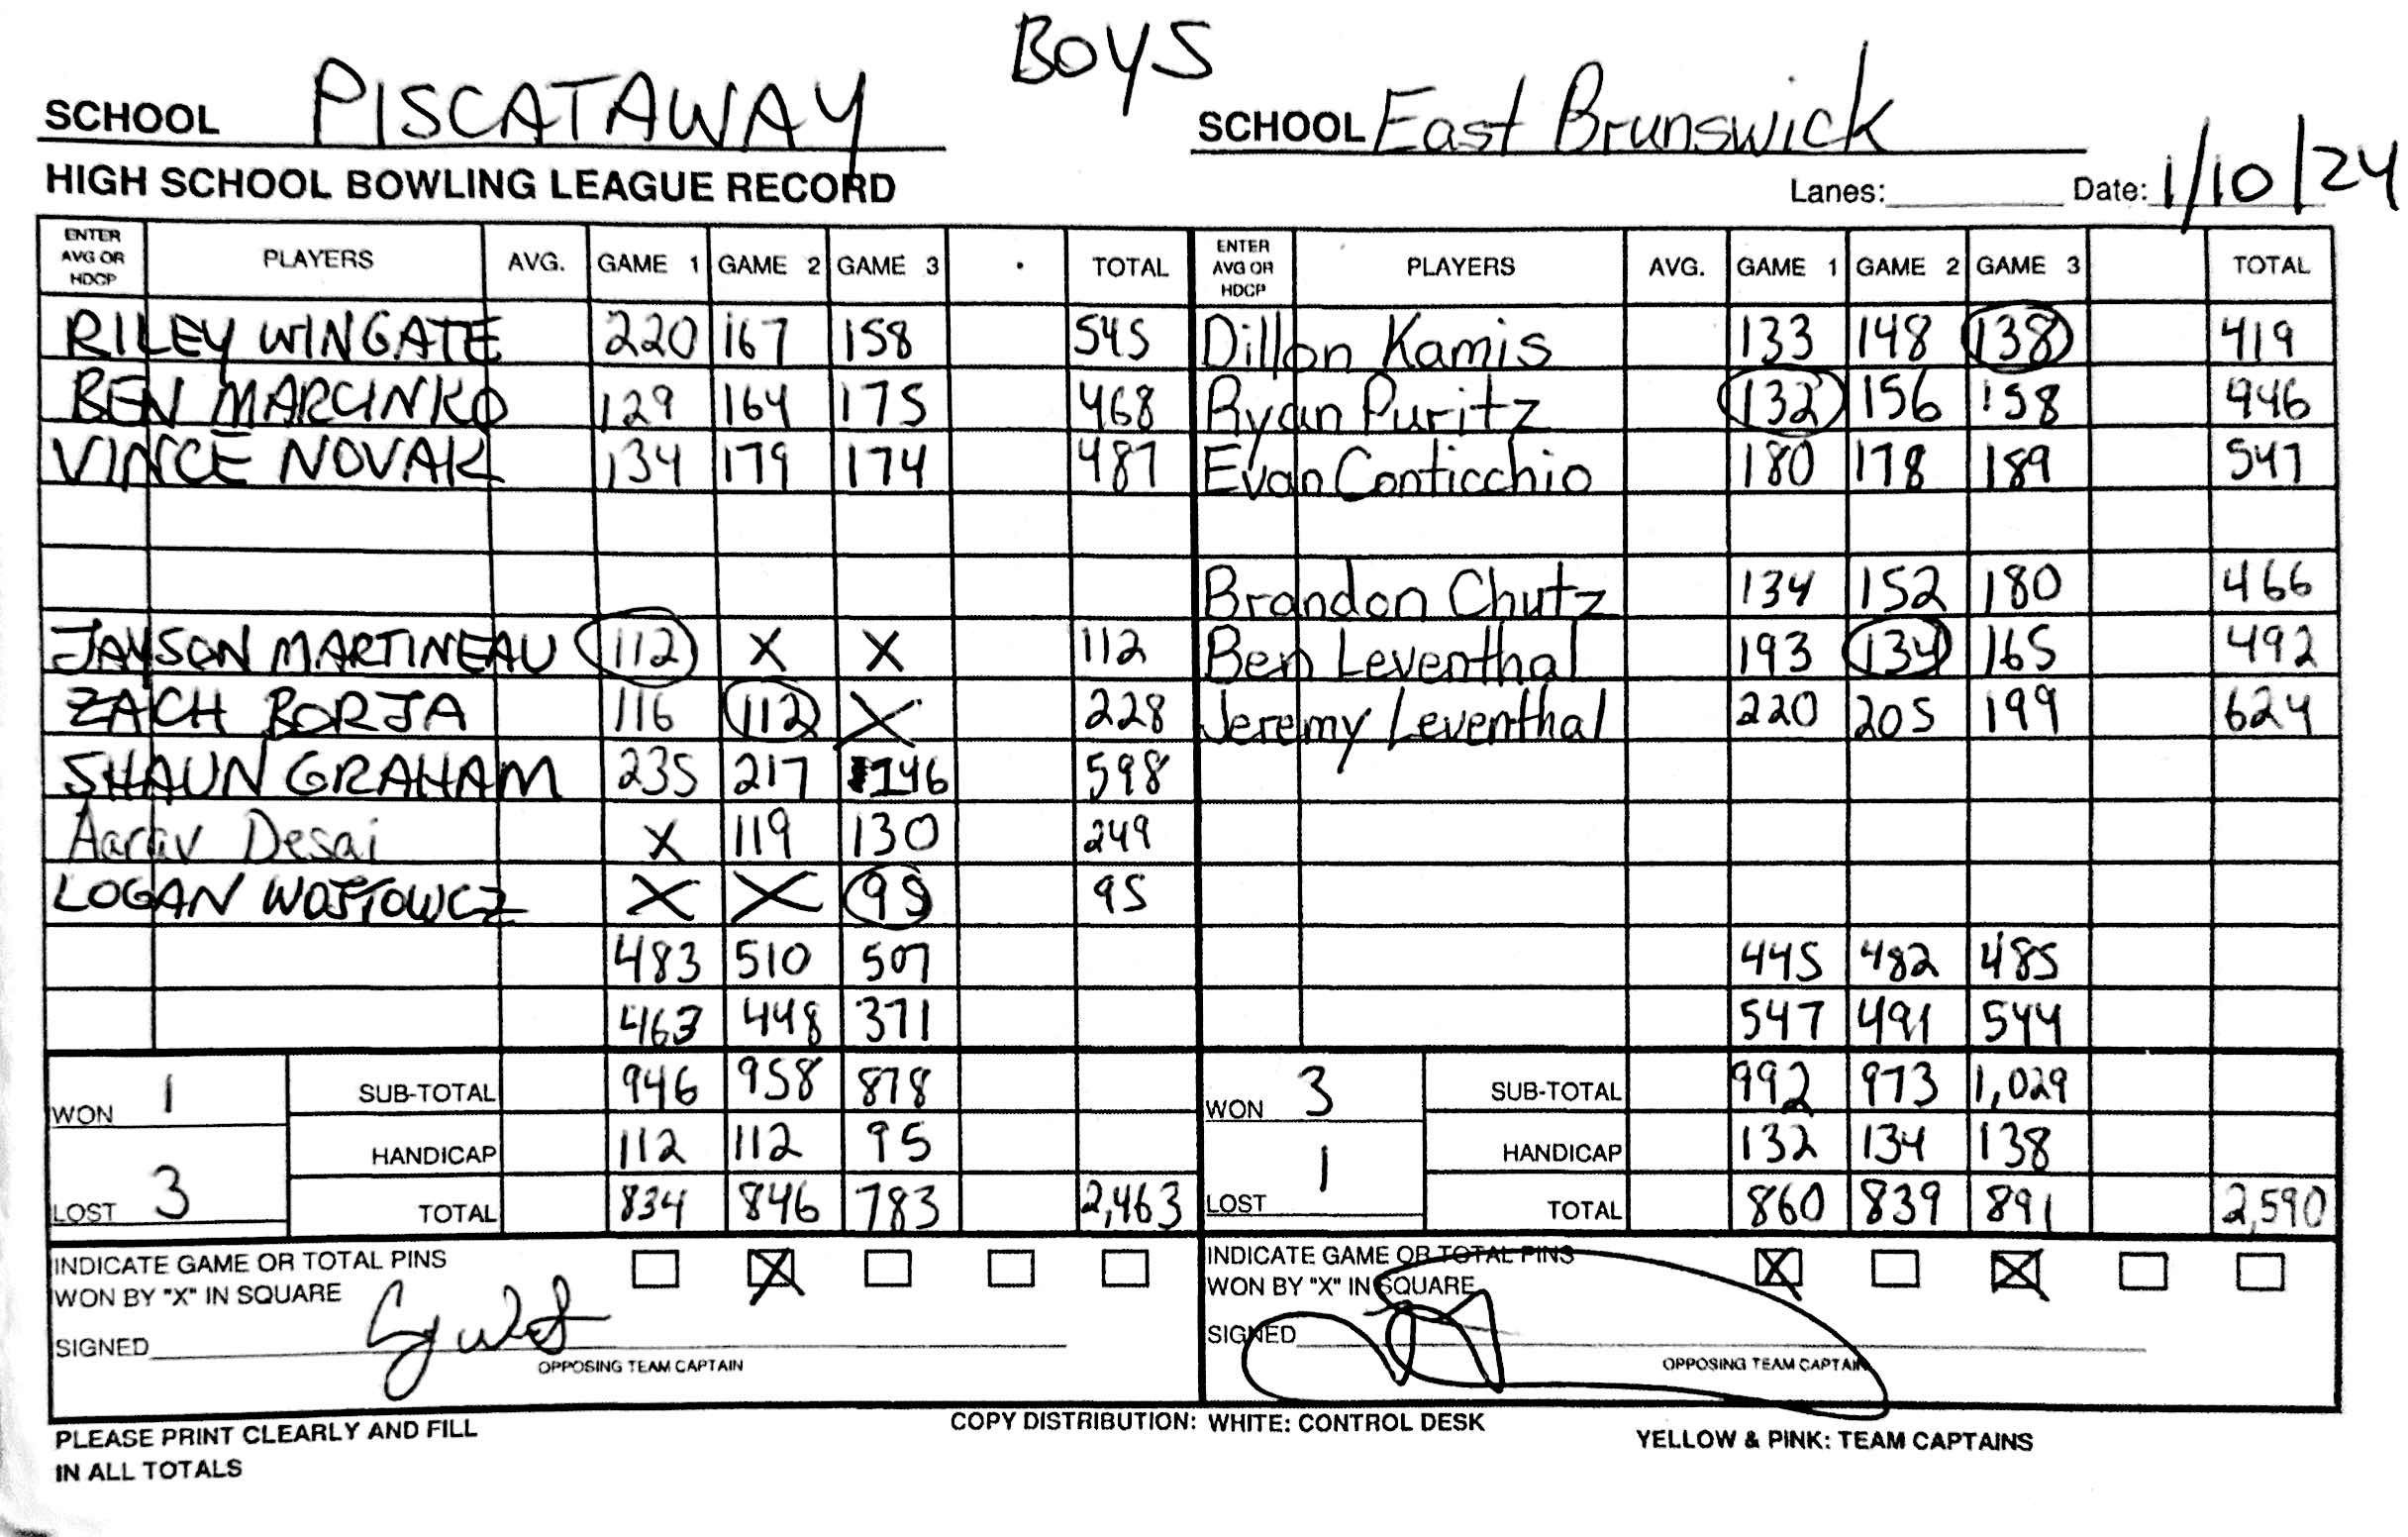 BOYS
SCHOOL PISCATAWAY SCHOOL East Brunswick
HIGH SCHOOL BOWLING LEAGUE RECORD Lanes: Date: 1/10/24
ENTER AVG OR HDCP PLAYERS AVG. GAME 1 GAME 2 GAME 3 TOTAL ENTER AVG OR HDCP PLAYERS AVG. GAME 1 GAME 2 GAME 3 TOTAL
RILEY WINGATE 220 167 158 545 Dillon Kamis 133 148 138 419
BEN MARCINKO 129 164 175 468 Ryan Puritz 132 156 158 446
VINCE NOVAK 134 179 174 487 Evan Conticchio 180 178 189 547
Brandon Chutz 134 152 180 466
JAYSON MARTINEAU 112 X X 112 Ben Leventhal 193 134 165 492
ZACH BORJA 116 112 X 228 Jeremy Leventhal 220 205 199 624
SHAUN GRAHAM 235 217 146 598
Aarav Desai X 119 130 249
LOGAN X X 95 95
483 510 507 445 482 485
463 448 371 547 491 544
WON 1 SUB-TOTAL 946 958 878 WON 3 SUB-TOTAL 992 973 1,029
HANDICAP 112 112 95 HANDICAP 132 134 138
LOST 3 TOTAL 834 846 783 2,463 LOST 1 TOTAL 860 839 891 2,590
INDICATE GAME OR TOTAL PINS X INDICATE GAME OR TOTAL PINS X X
WON BY "X" IN SQUARE WON BY "X" IN SQUARE
SIGNED SIGNED
OPPOSING TEAM CAPTAIN OPPOSING TEAM CAPTAIN
PLEASE PRINT CLEARLY AND FILL COPY DISTRIBUTION: WHITE: CONTROL DESK YELLOW & PINK: TEAM CAPTAINS
IN ALL TOTALS